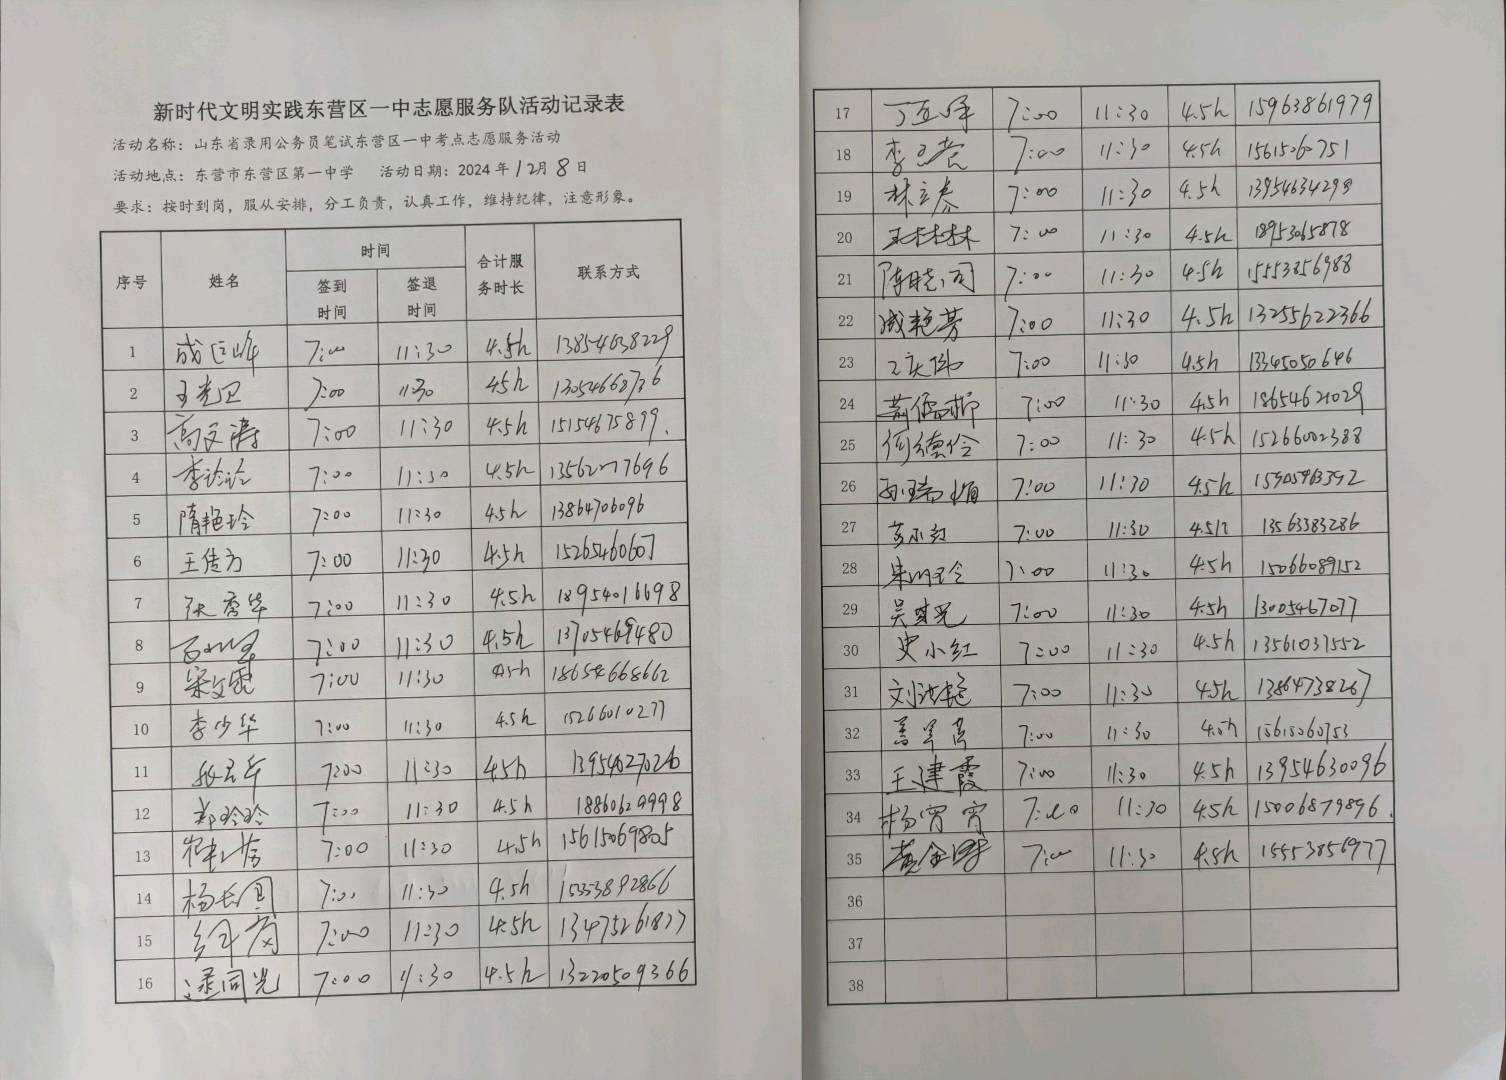 新时代文明实践东营区一中志愿服务队活动记录表
活动名称：山东省录用公务员笔试东营区一中考点志愿服务活动
活动地点：东营市东营区第一中学 活动日期：2024 年 12月 8 日
要求：按时到岗，服从安排，分工负责，认真工作，维持纪律，注意形象。
序号 姓名 时间 签到时间 签退时间 合计服务时长 联系方式
1 7:00 11:30 4.5h 13854638229
2 王光卫 7:00 1130 45h 13054668736
3 高文涛 7:00 11:30 4.5h 15154675899.
4 7:00 11:30 4.5h 13562277696
5 隋艳玲 7:00 11:30 4.5h 13864706096
6 王传方 7:00 11:30 4.5h 15265460607
7 张秀华 7:00 11:30 4.5h 18954016698
8 7:00 11:30 4.5h 13705469480
9 7:00 11:30 4.5h 18654668662
10 李少华 7:00 11:30 4.5h 15266010277
11 7:00 11:30 4.5h 13954027026
12 郑玲玲 7:00 11:30 4.5h 18860629998
13 7:00 11:30 4.5h 15615069805
14 7:00 11:30 4.5h 15353892866
15 7:00 11:30 4.5h 13475261877
16 7:00 11:30 4.5h 13220509366
17 7:00 11:30 4.5h 15963861979
18 7:00 11:30 4.5h 15615060751
19 林立春 7:00 11:30 4.5h 13954634298
20 王林林 7:00 11:30 4.5h 18953065878
21 7:00 11:30 4.5h 15553856988
22 臧艳芳 7:00 11:30 4.5h 13255622366
23 7:00 11:30 4.5h 13345050646
24 7:00 11:30 4.5h 18654621029
25 何德伶 7:00 11:30 4.5h 15266002388
26 7:00 11:30 4.5h
27 7:00 11:30 4.5h 13563383286
28 7:00 11:30 4.5h 15066089152
29 7:00 11:30 4.5h 13005467077
30 史小红 7:00 11:30 4.5h 13561031552
31 7:00 11:30 4.5h 13864738267
32 7:00 11:30 4.5h 15615060753
33 王建霞 7:00 11:30 4.5h 13954630096
34 杨宵宵 7:00 11:30 4.5h 15006879896.
35 7:00 11:30 4.5h 15553856977
36
37
38